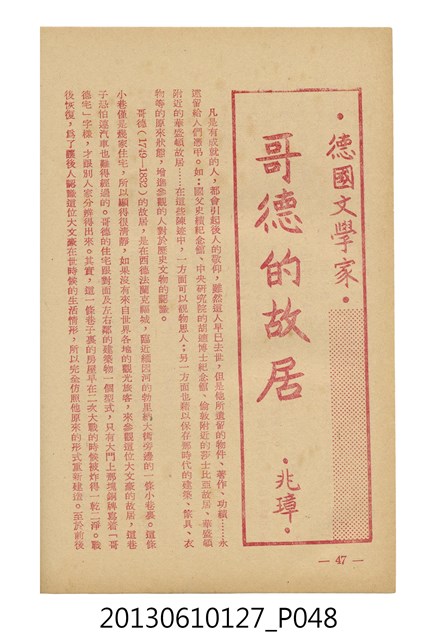 •德國文學家•
哥德的故居
•兆璋•
凡是有成就的人，都會引起後人的敬仰，雖然這人早已去世，但是他所遺留的物件、著作、功績……永
遠留給人們憑弔。如：國父史積紀念館、中央研究院的胡適博士紀念館、倫敦附近的莎士比亞故居、華盛頓
附近的華盛頓故居……在這些陳迹中，一方面可以覩物思人；另一方面也藉以保存那時代的建築、傢具、衣
物等的原來狀態，增進參觀的人對於歷史文物的認識。
哥德（1749—1832）的故居，是在西德法蘭克福城，臨近緬因河的勃里納大橋旁邊的一條小巷裏。這條
小巷僅是幾家住宅，所以顯得很清靜，如果沒有來自世界各地的觀光旅客，來參觀這位大文豪的故居，這巷
子恐怕連汽車也難得經過的。哥德的住宅跟對面及左右鄰的建築物一個型式，只有大門上那塊銅牌寫着「哥
德宅」字樣，才跟別人家分辨得出來。其實，這一條巷子裏的房屋早在二次大戰的時候被炸得一乾二淨。戰
後恢復，爲了讓後人認識這位大文豪在世時候的生活情形，所以完全仿照他原來的形式重新建造。至於前後
— 47 —
20130610127_P048